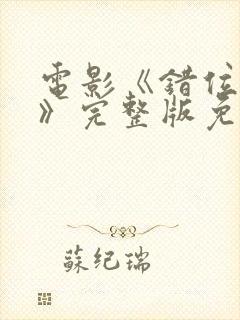 電影《錯位
》完整版免
蘇紀瑞